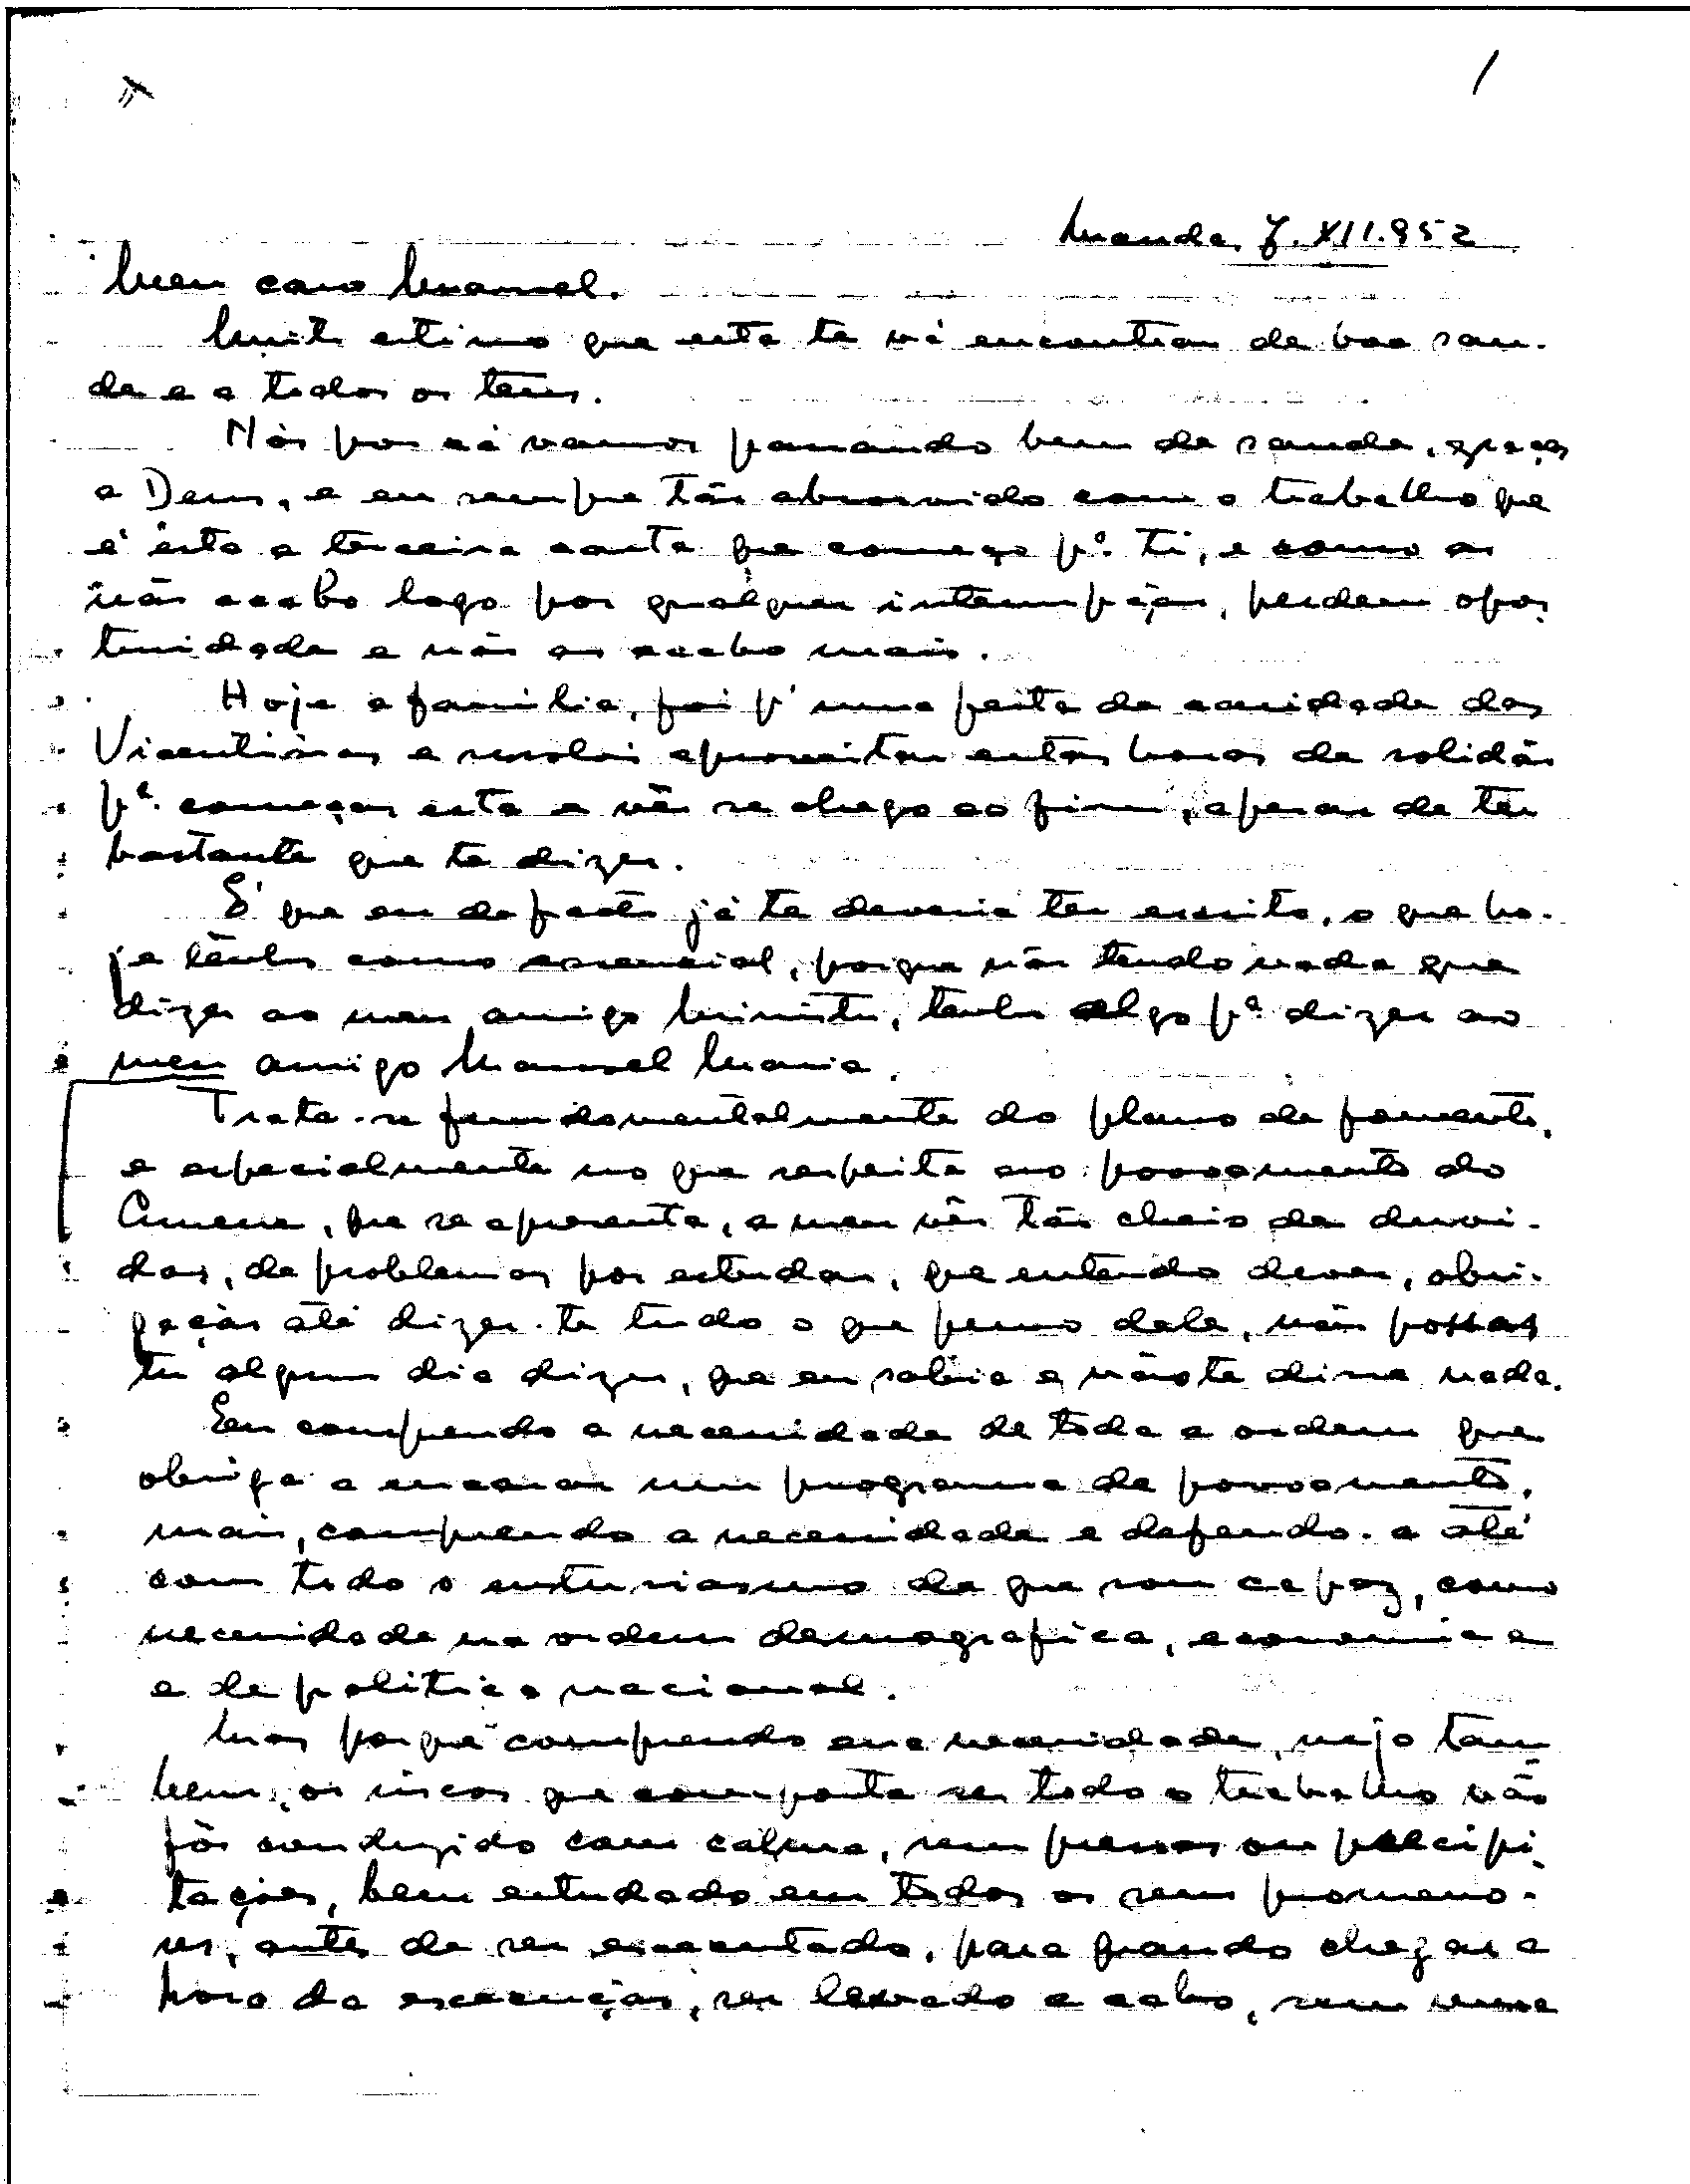 1
Luanda, 7. XII. 952
Meu caro Manuel.
Muito estimo que esta te vá encontrar de boa sau-
de e a todos os teus.
Nós por cá vamos passando bem de saude, graças
a Deus, e eu sempre tão absorvido com o trabalho que
é esta a terceira carta que começo pª. ti, e como as
não acabo logo por qualquer interrupção, perdem opor-
tunidade e não as acabo mais.
Hoje a familia, foi p' uma festa de caridade das
Vicentinas e resolvi aproveitar estas horas de solidão
pª. começar esta e vêr se chego ao fim, apesar de ter
bastante que te dizer.
E' que eu de facto já te deveria ter escrito, o que ho-
je tenho como essencial, porque não tendo nada que
dizer ao meu amigo Ministro, tenho algo pª dizer ao
meu amigo Manuel Maria.
Trata-se fundamentalmente do plano de fomento,
e especialmente no que respeita ao povoamento do
Cunene, que se apresenta, a meu vêr tão cheio de duvi-
das, de problemas por estudar, que entendo dever, obri-
gação até dizer-te tudo o que penso dele, não possas
tu algum dia dizer, que eu sabia e não te disse nada.
Eu compreendo a necessidade de toda a ordem que
obriga a encarar um programa de povoamento,
mais, compreendo a necessidade e defendo-a até
com todo o entusiasmo de que sou capaz, como
necessidade na ordem demografica, economica
e de politica nacional.
Mas porque compreendo essa necessidade, vejo tam
bem, os riscos que comporta se todo o trabalho não
fôr conduzido com calma, sem pressas ou precipi-
tações, bem estudado em todos os seus pormeno-
res, antes de ser executado, para quando chegar a
hora da execução, ser levado a cabo, sem uma